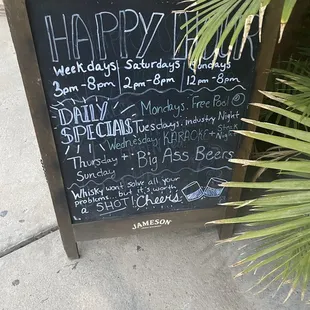 HAPPY HOUR
Weekdays Saturdays Sundays
3pm-8pm 2pm-8pm 12pm-8pm
DAILY
SPECIALS
Mondays. Free Pool
Tuesdays. industry Night
Wednesday. KARAOKE +
Thursday +
Sunday
Big Ass Beers
Whisky wont solve all your
problems.. but it's worth
a SHOT! Cheers
JAMESON